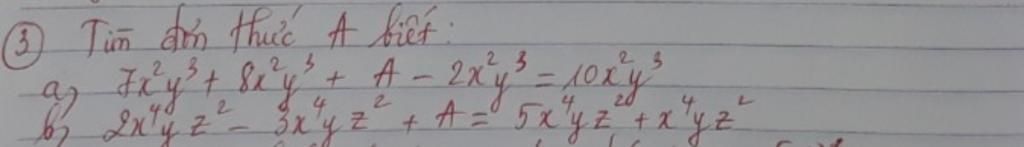 ③ Tìm đơn thức A biết:
a, 7x²y³ + 8x²y³ + A - 2x²y³ = 10x²y³
b, 2x⁴yz² - 3x⁴yz² + A = 5x⁴yz² + x⁴yz²